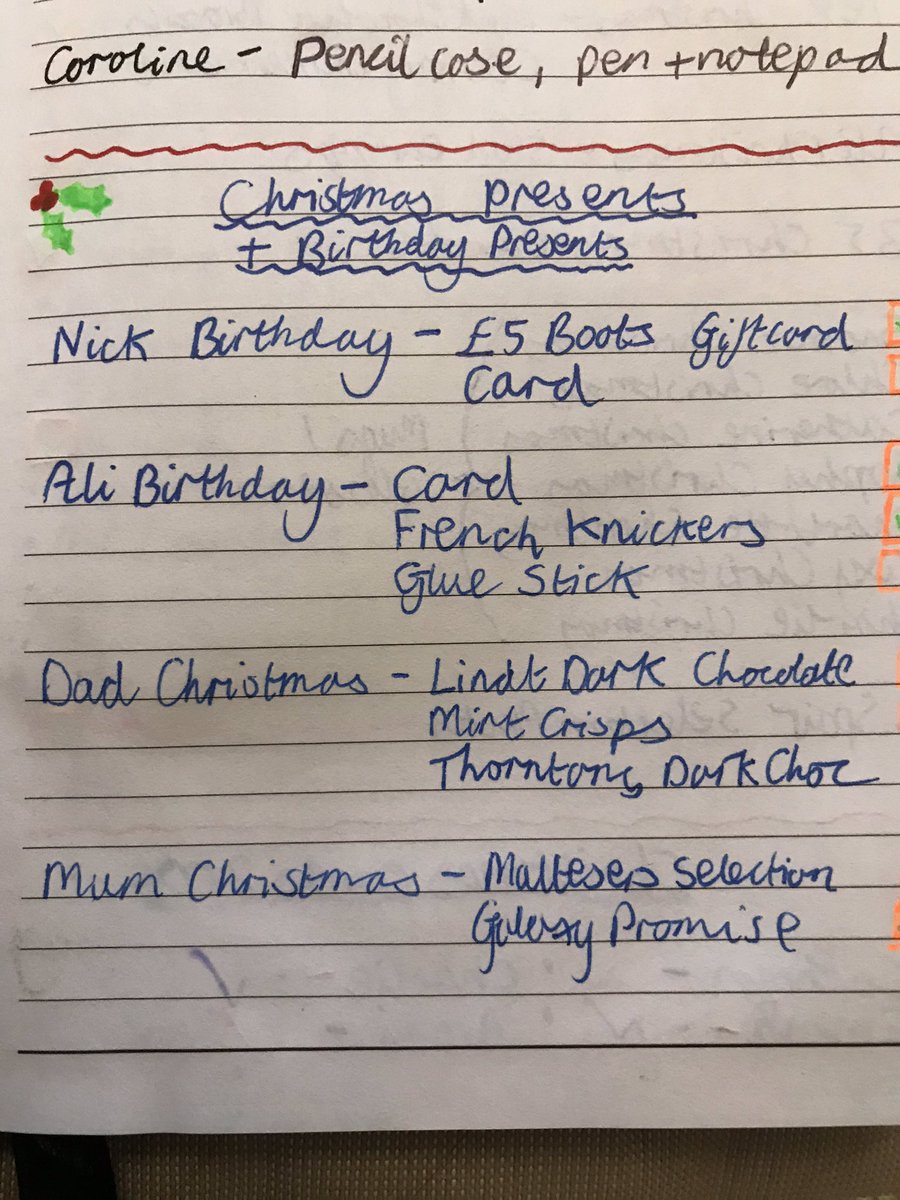 Caroline - Pencil case, pen + notepad
Christmas presents
+ Birthday Presents
Nick Birthday - £5 Boots Giftcard
Card
Ali Birthday - Card
French Knickers
Glue Stick
Dad Christmas - Lindt Dark Chocolate
Mint Crisps
Thorntons Dark Choc
Mum Christmas - Maltesers Selection
Galaxy Promise